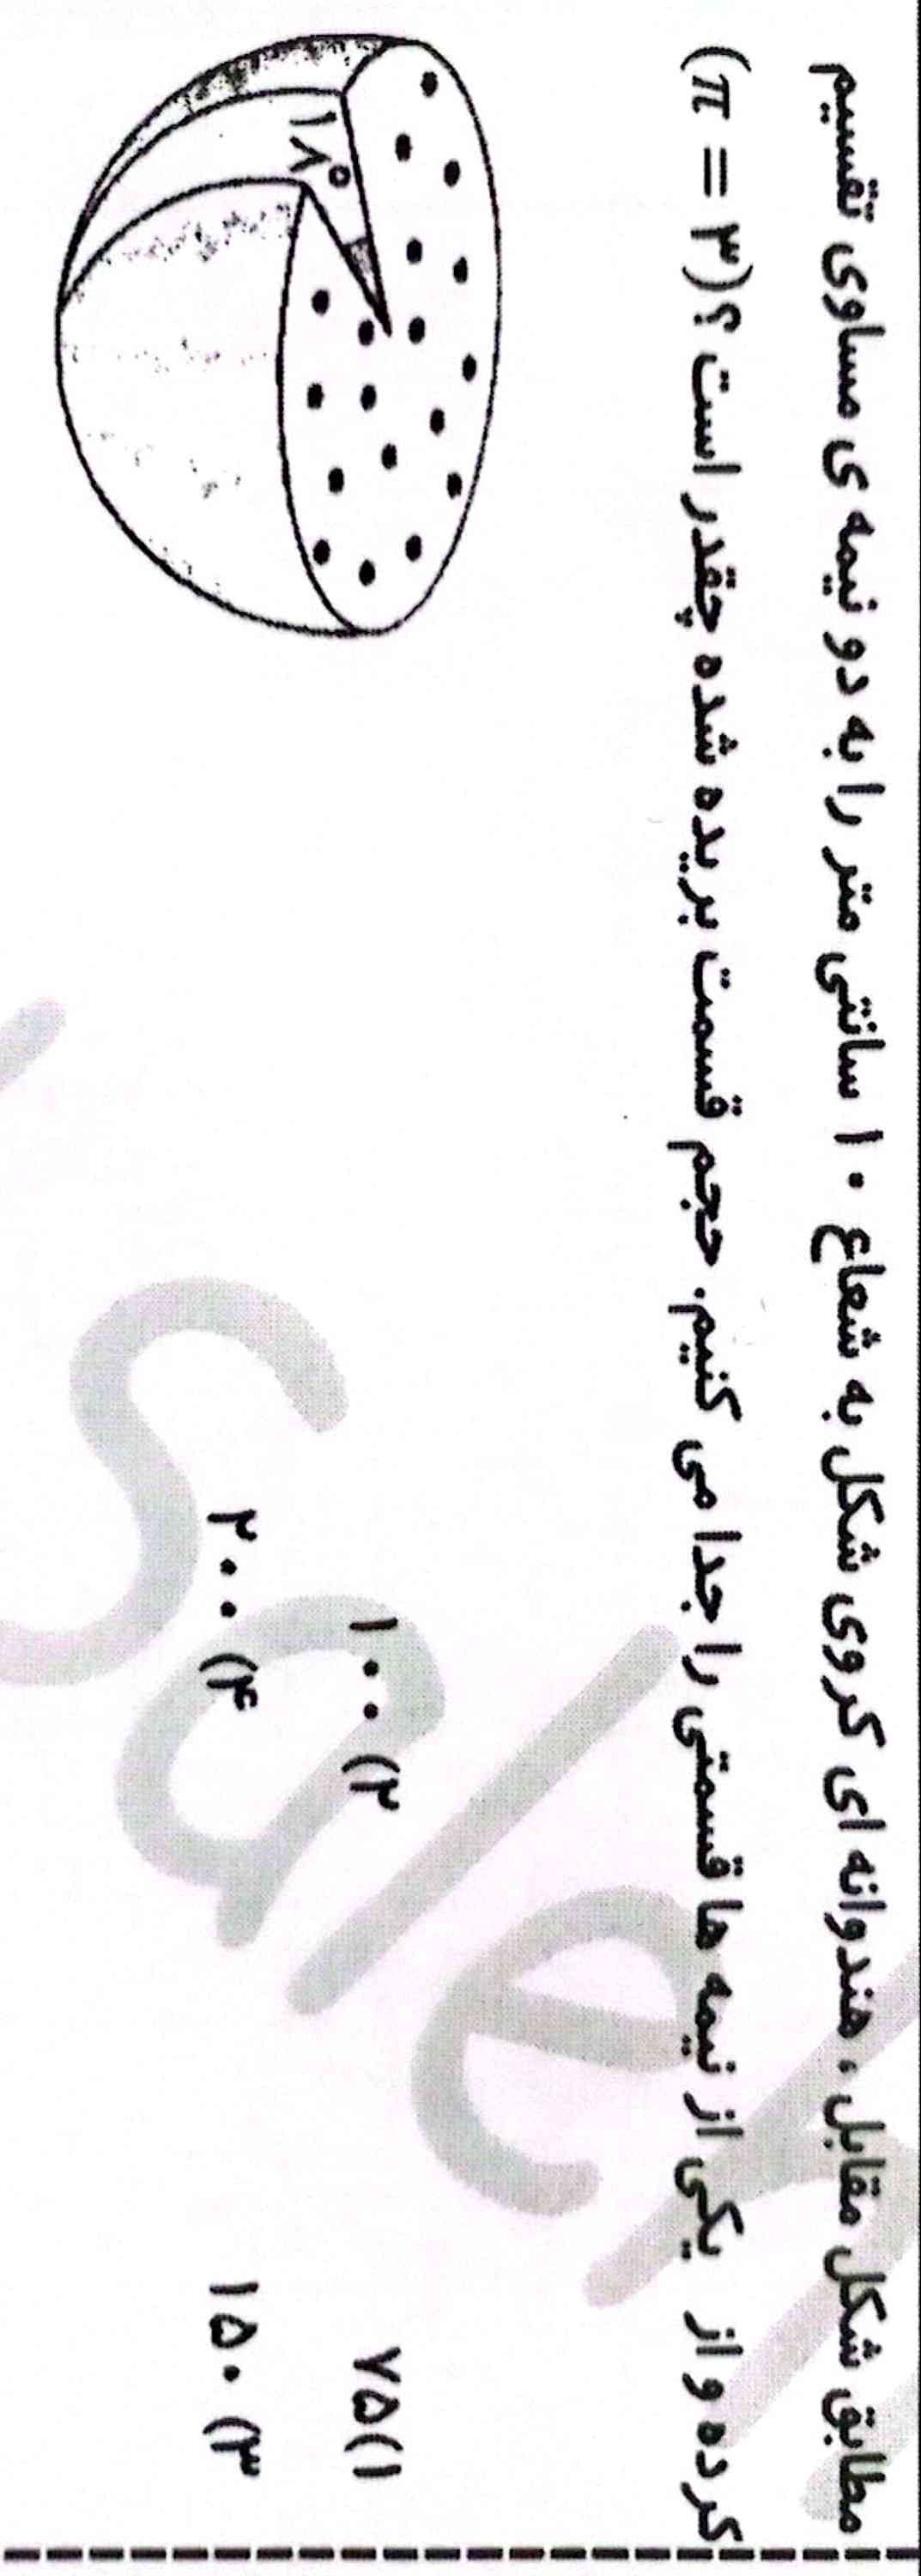 مطابق شکل مقابل، هندوانه ای کروی شکل به شعاع ۱۰ سانتی متر را به دو نیمه ی مساوی تقسیم
کرده و از یکی از نیمه ها قسمتی را جدا می کنیم. حجم قسمت بریده شده چقدر است؟ (π = ۳)
۱) ۷۵
۲) ۱۰۰
۳) ۱۵۰
۴) ۲۰۰
۱۸°